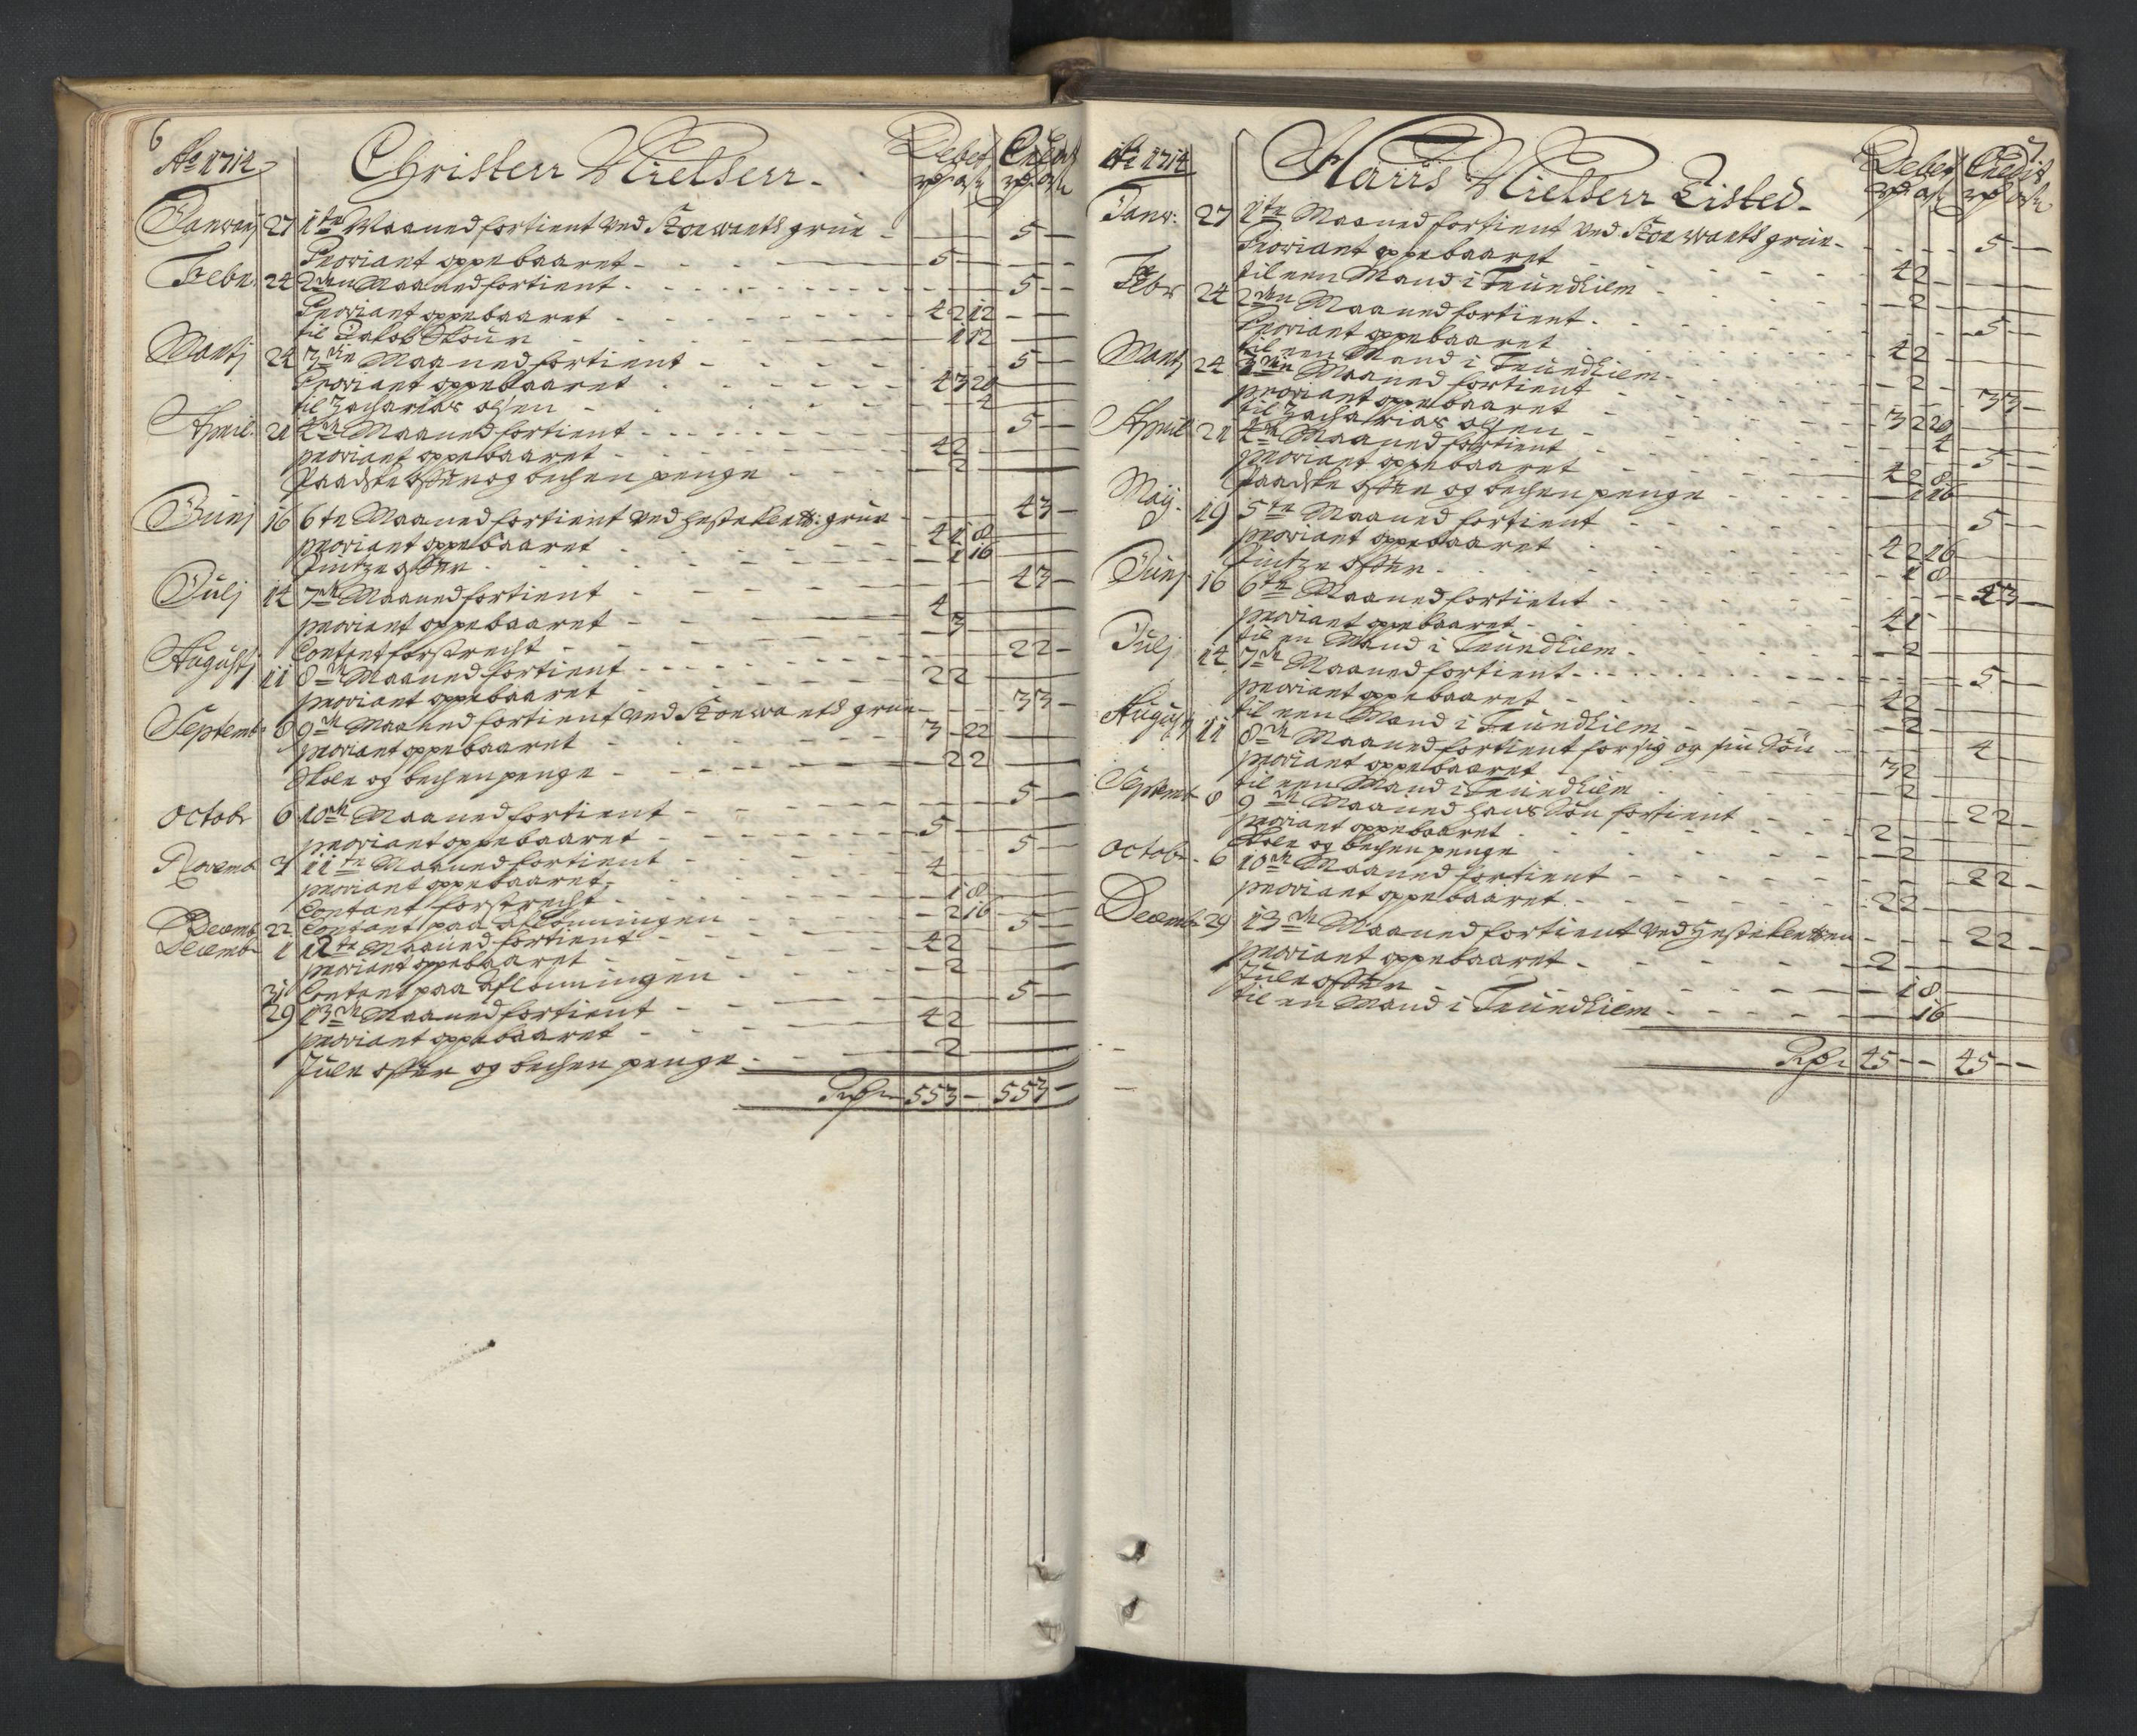 6
Ao 1714
Christen Nielsen
Debet Credit
rdr ort s rdr ort s
Januarj 27 1te Maaned fortient ved Storwarts grue - 5 -
Proviant oppebaaret - 5 -
Febr. 24 2den Maaned fortient - 5 -
Proviant oppebaaret - 4 2 12
til Jakob - 1 12
Martj 24 3die Maaned fortient - 5 -
Proviant oppebaaret - 4 3 20
til Zacharias olsen - 4
April 21 4de Maaned fortient - 5 -
proviant oppebaaret - 4 2
Paaske offer og bechen penge - 2
Junj 16 6te Maaned fortient ved hestekletz: grue - 4 3 -
proviant oppebaaret - 4 1 8
Pintze offer - 1 16
Julj 14 7de Maaned fortient - 4 3 -
proviant oppebaaret - 4
Contant forstrecht - 3
Augustj 11 8de Maaned fortient - 2 2 -
proviant oppebaaret - 2 2
Septemb: 8 9de Maaned fortient ved Storwarts grue - 3 3 -
proviant oppebaaret - 3 - 22
Skole og bechen penge - 2 2
Octobr 6 10de Maaned fortient - 5 -
proviant oppebaaret - 5 -
Novemb 11te Maaned fortient - 5 -
proviant oppebaaret - 4
Contant forstrecht - 1 8
Decemb 22 Contant paa aflønningen - 2 16
Decembr 1 12te Maaned fortient - 5 -
proviant oppebaaret - 4 2
31 Contant paa aflønningen - 2
29 13de Maaned fortient - 5 -
proviant oppebaaret - 4 2
Jule offer og bechen penge - 2
Rdr 55 3 - 55 3 -
7
Ao 1714
Hans Nielsen Listed
Debet Credit
rdr ort s rdr ort s
Janv: 27 1te Maaned fortient ved Storwarts grue - 5 -
Proviant oppebaaret - 4 2
til een Mand i Trundhiem - 2
Febr 24 2den Maaned fortient - 5 -
Proviant oppebaaret - 4 2
til een Mand i Trundhiem - 2
Martj 24 3die Maaned fortient - 3 3 -
proviant oppebaaret - 3 2 20
til Zacharias olsen - 4
April 21 4de Maaned fortient - 5 -
proviant oppebaaret - 4 2 8
Paaske offer og bechen penge - 1 16
Maij 19 5te Maaned fortient - 5 -
proviant oppebaaret - 4 2 16
Pintze offer - 1 8
Junj 16 6te Maaned fortient - 4 3 -
proviant oppebaaret - 4 1
til en Mand i Trundhiem - 2
Julj 14 7de Maaned fortient - 5 -
proviant oppebaaret - 4 2
til een Mand i Trundhiem - 2
Augustj 11 8de Maaned fortient for sig og sin Søn - 4
proviant oppebaaret - 3 2
til een Mand i Trundhiem - 2
Septemb 8 9de Maaned hans Søn fortient - 2 2 -
proviant oppebaaret - 2 -
Skole og bechen penge - 2
Octobr 6 10de Maaned fortient - 2 2 -
proviant oppebaaret - 2 2
Decemb 29 13de Maaned fortient ved Hestekletten - 2 2 -
proviant oppebaaret - 2
Jule offer - 1 8
til en Mand i Trundhiem - 16
Rdr 45 - - 45 - -